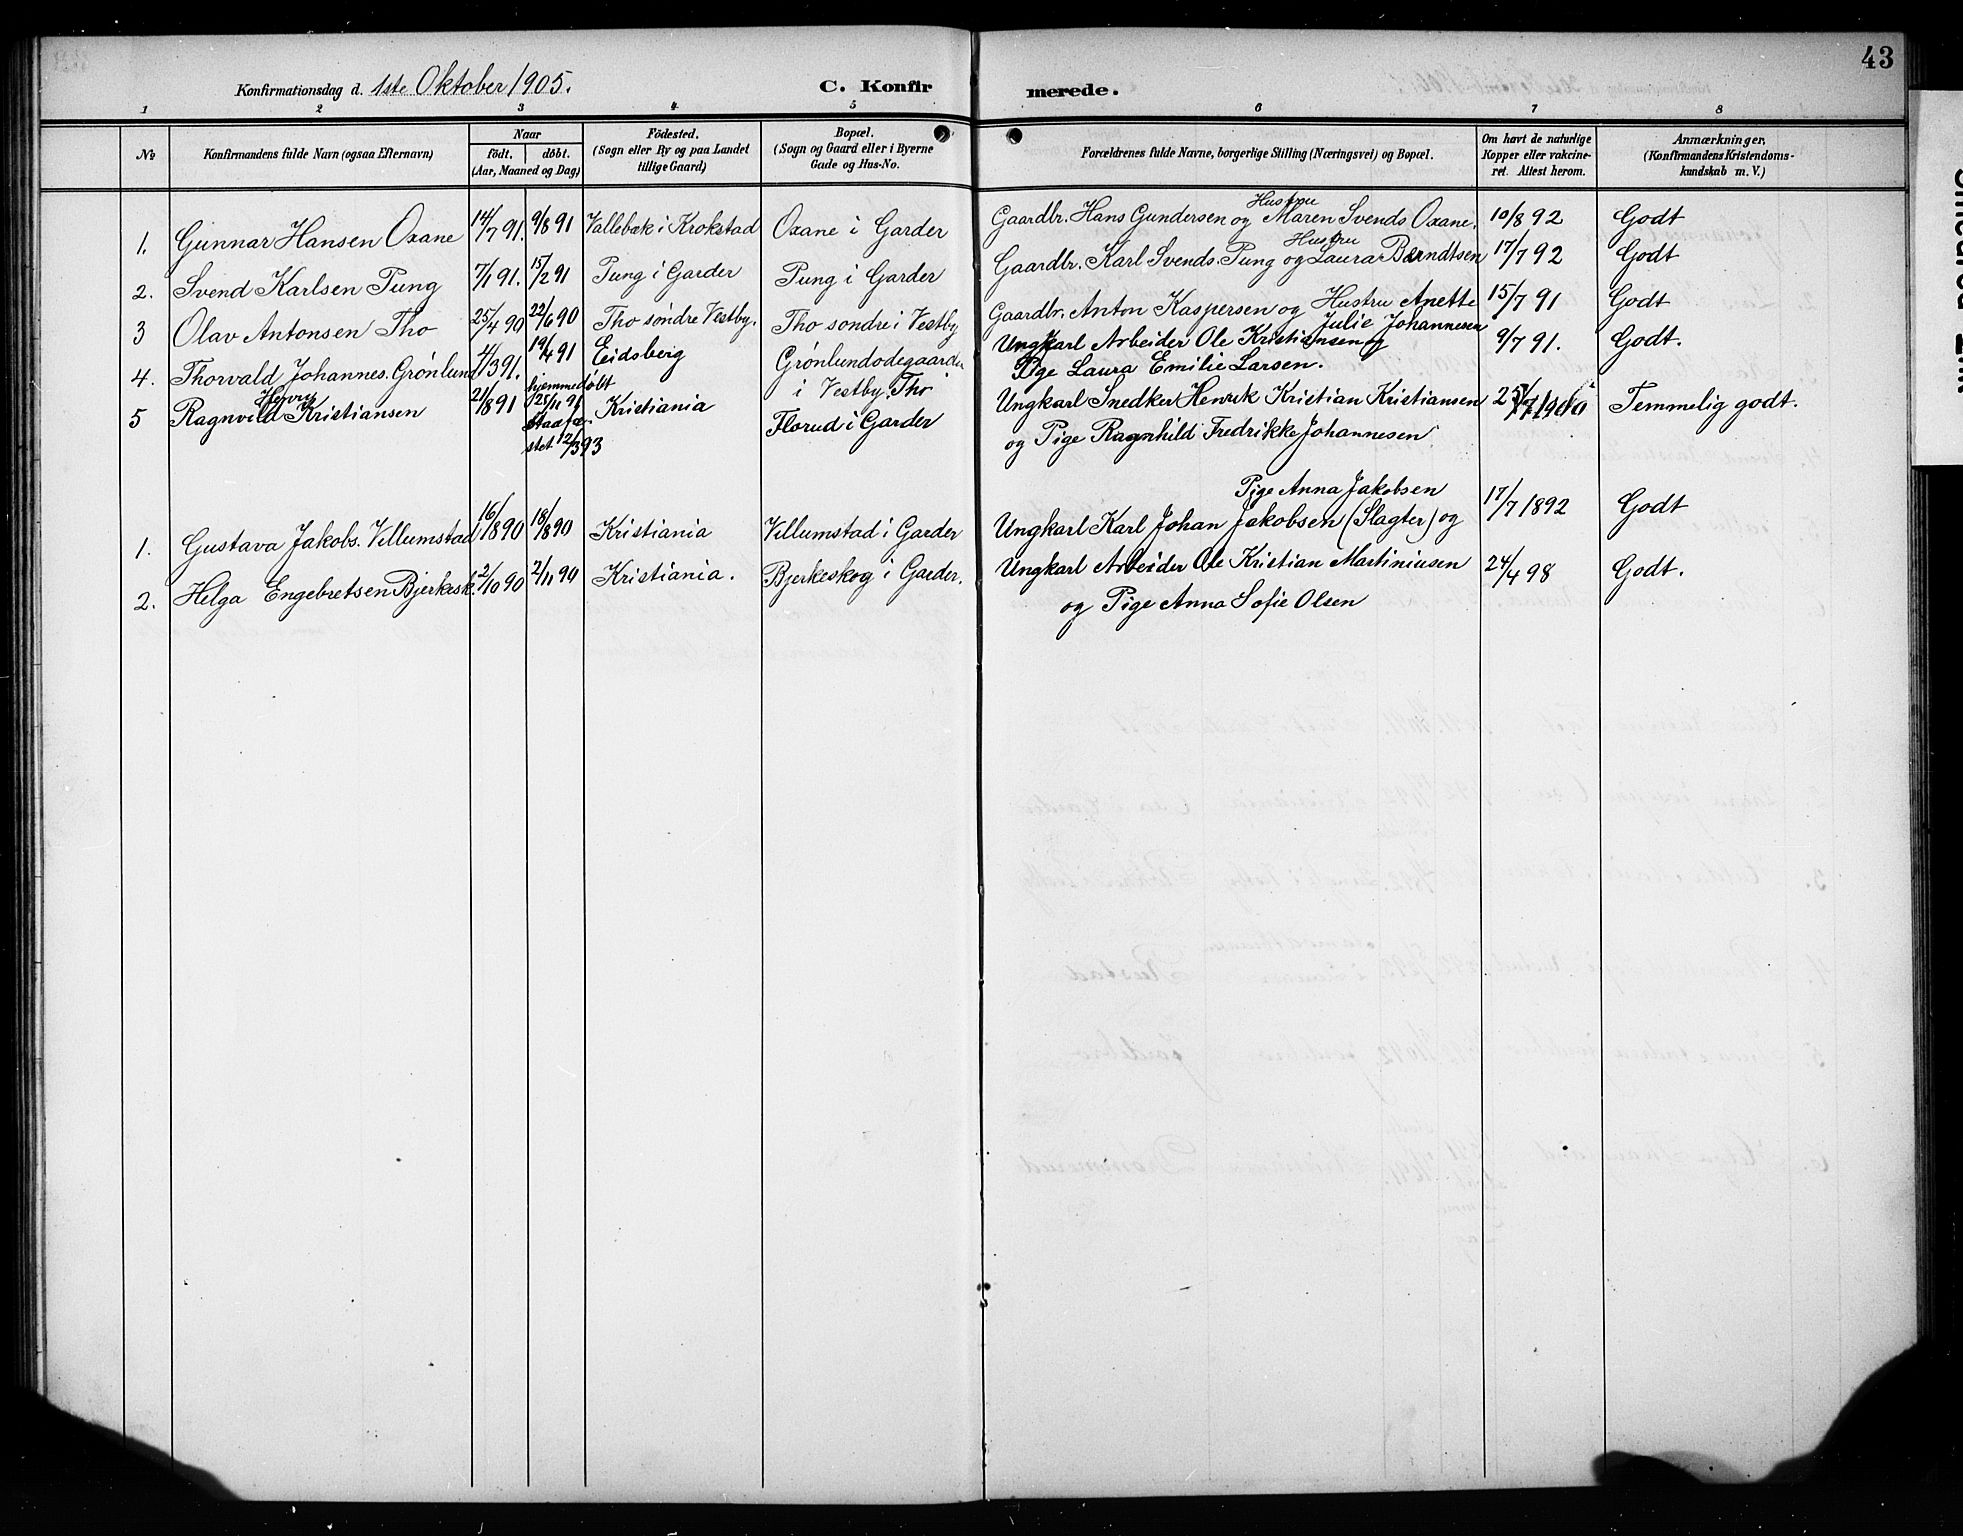 43
Konfirmationsdag d. 1ste Oktober 1905. C. Konfirmerede.
1 2 3 4 5 6 7 8
No Konfirmandens fulde Navn (ogsaa Efternavn) Naar født, døbt. (Aar, Maaned og Dag) Fødested. (Sogn eller By og paa Landet tillige Gaard) Bopæl. (Sogn og Gaard eller i Byerne Gade og Hus-No. Forældrenes fulde Navne, borgerlige Stilling (Næringsvei) og Bopæl. Om havt de naturlige Kopper eller vakcineret. Attest herom. Anmærkninger. (Konfirmandens Kristendomskundskab m. V.)
1. Gunnar Hansen Oxane 14/7 91. 9/8 91 Vallebæk i Krokstad Oxane i Garder Gaardbr. Hans Gundersen og Hustru Maren Svends Oxane. 10/8 92 Godt
2. Svend Karlsen Pung 7/1 91. 15/2 91 Pung i Garder Pung i Garder Gaardbr. Karl Svends. Pung og Hustru Laura Berndtsen 17/7 92 Godt
3 Olav Antonsen Tho 25/4 90 22/6 90 Tho søndre Vestby. Tho søndre i Vestby Gaardbr. Anton Kaspersen og Hustru Anette Julie Johannesen 15/7 91 Godt
4. Thorvald Johannes. Grønlund 4/3 91. 19/4 91 Eidsberg Grønlundødegaarden i Vestby. Tho Ungkarl Arbeider Ole Kristiansen og
Pige Laura Emilie Larsen. 9/7 91. Godt.
5 Ragnvald Henry Kristiansen 21/8 91 hjemmedøbt 25/11 91 Stadfæstet 12/3 93 Kristiania Florud i Garder Ungkarl Snedker Henrik Kristian Kristiansen
og Pige Ragnhild Fredrikke Johannesen 25/7 1900 Temmelig godt.
1. Gustava Jakobs. Villumstad 16/8 90 18/8 90 Kristiania Villumstad i Garder Ungkarl Karl Johan Jakobsen (Slagter) og Pige Anna Jakobsen 17/7 1892 Godt
2. Helga Engebretsen Bjerkesk. 2/10 90 2/11 90 Kristiania. Bjerkeskog i Garder. Ungkarl Arbeider Ole Kristian Martiniusen
og Pige Anna Sofie Olsen 24/4 98 Godt.